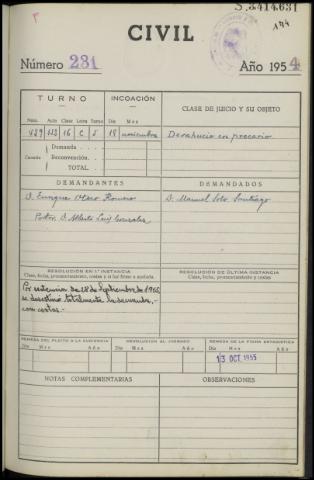 S.3414.631
174
CIVIL
Número 231
Año 1954
TURNO
INCOACIÓN
CLASE DE JUICIO Y SU OBJETO
Núm. Auto Clase Letra Turno Día Mes
429 113 16 C 5 18 noviembre Desahucio en precario
Cuantía Demanda
Reconvención
TOTAL
DEMANDANTES
DEMANDADOS
D. Enrique Otero Romero
D. Manuel Soto Santiago
D. Alberto Luis González
RESOLUCIÓN EN 1.ª INSTANCIA
RESOLUCIÓN DE ÚLTIMA INSTANCIA
Clase, fecha, pronunciamiento, costas y si fué firme o apelada
Clase, fecha, pronunciamiento, costas
Por sentencia de 28 de Septiembre de 1955,
se desestimó totalmente la demanda,
con costas.
REMESA DEL PLEITO A LA AUDIENCIA
DEVOLUCIÓN AL JUZGADO
REMESA DE LA FICHA ESTADÍSTICA
Día Mes Año
Día Mes Año
Día Mes Año
13 OCT. 1955
NOTAS COMPLEMENTARIAS
OBSERVACIONES